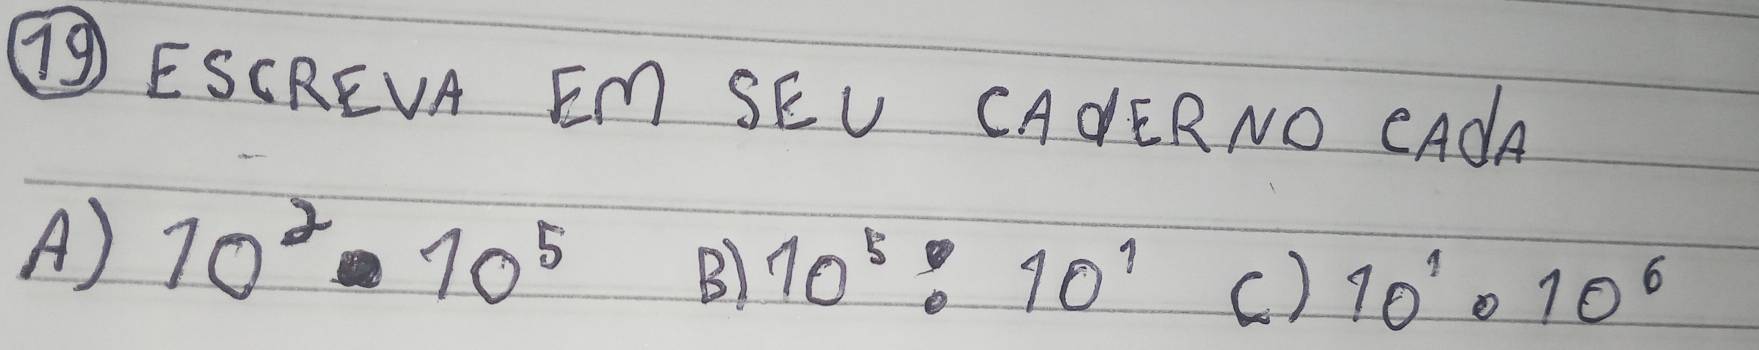 19 ESCREVA EM SEU CADERNO CADA
A) 10² • 10⁵ B) 10⁵ : 10¹ C) 10¹ • 10⁶